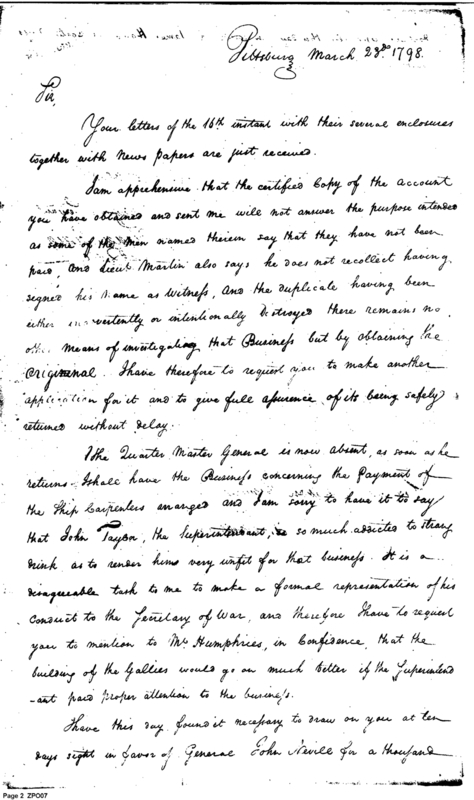 Pittsburg March 23rd 1798.
Sir,
Your letters of the 16th instant with their several enclosures
together with News papers are just received.
I am apprehensive that the certified Copy of the account
you have obtained and sent me will not answer the purpose intended
as some of the Men named therein say that they have not been
paid, and Lieut Martin also says he does not recollect having
signed his Name as Witness, And the duplicate having been
either inadvertently or intentionally Destroyed there remains no
other means of investigating that Business but by obtaining the
Origininal. I have therefore to request you to make another
application for it and to give full assurence of its being safely
returned without delay.
The Quarter Master General is now absent, as soon as he
returns I shall have the Business concerning the Payment of
the Ship Carpenters arranged and I am sorry to have it to say
that John Taylor, the Superintendant, is so much addicted to strong
drink as to render him very unfit for that business. It is a
disagreeable task to me to make a formal representation of his
conduct to the Secretary of War, and therefore I have to request
you to mention to Mr Humphries, in Confidence, that the
building of the Gallies would go on much better if the Superintend
-ant paid proper attention to the business.
I have this day found it necessary to draw on you at ten
days sight in favor of General John Nevill for a thousand
Page 2 ZPO07